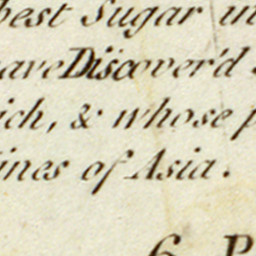 best Sugar in
have Discover'd
ich, & whose
ines of Asia.
6